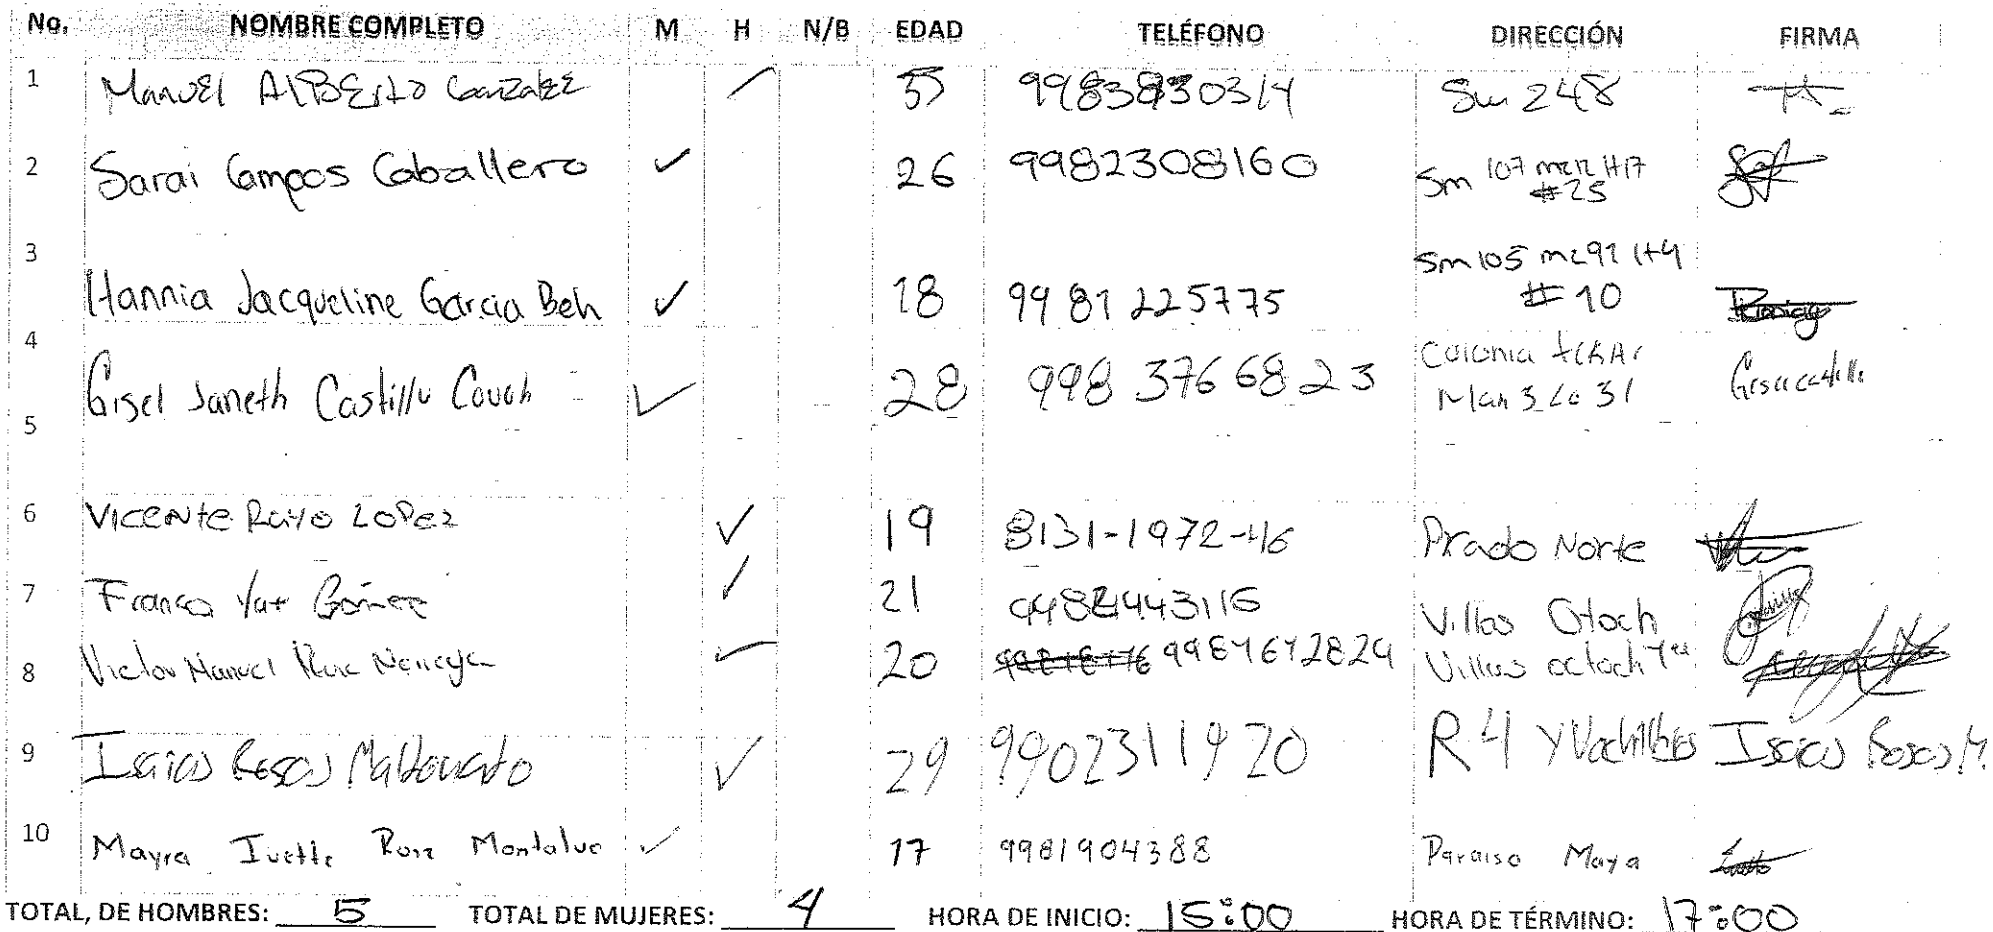 No. NOMBRE COMPLETO M H N/B EDAD TELÉFONO DIRECCIÓN FIRMA
1 Manuel Alberto Gonzalez 998383 0314 Sm 248
2 Sarai Campos Caballero ✓ 26 9982308160 Sm 107 #25
3 Sm 105 mz 92 lt 4
Hannia Jacqueline Garcia Beh ✓ 18 9981225775 #10
4 Colonia
Gisel Janeth Castillo Couoh ✓ 28 998 376 68 23 Man 3 Lo 31
5
6 Vicente Rayo Lopez ✓ 19 8131-1972-46 Prado Norte
7 Franco Yat Gómez ✓ 21 Villas Otoch
8 Victor Manuel Ruiz ✓ 20 Villas octoch
9 Isaias Rosas Maldonado ✓ 29 9902311920 R-4 Isaias Rosas M.
10 Mayra Ivette Ruiz Montalvo ✓ 17 9981904388 Paraiso Maya
TOTAL, DE HOMBRES: 5 TOTAL DE MUJERES: 4 HORA DE INICIO: 15:00 HORA DE TÉRMINO: 17:00